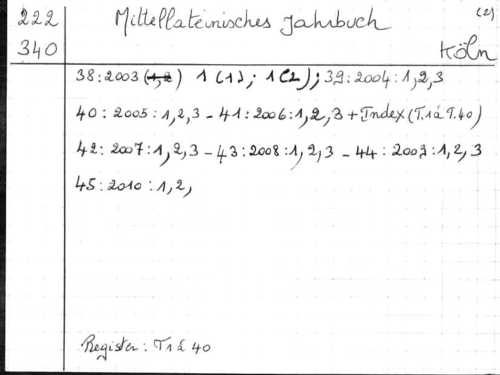 222 Mittellateinisches Jahrbuch (2)
340 Köln
38:2003 (1,2) 1 (1); 1 (2); 39:2004:1,2,3
40:2005:1,2,3 - 41:2006:1,2,3 + Index (T.1 à T.40)
42:2007:1,2,3 - 43:2008:1,2,3 - 44:2009:1,2,3
45:2010:1,2,
Register: T1 à 40